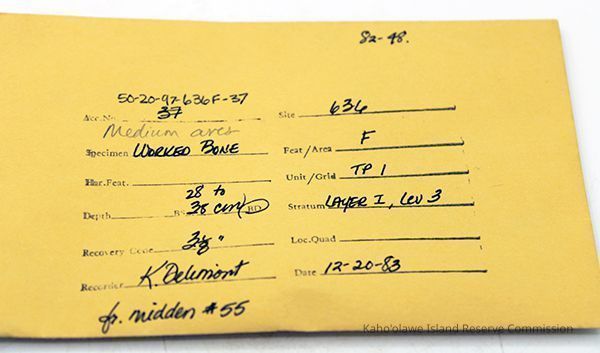 82-48.
50-20-97-636F-37
Acc.No. 37 Site 636
Medium aves
Specimen WORKED BONE Feat/Area F
Har.Feat. Unit/Grid TP 1
28 to
Depth 38 cm BD Stratum LAYER I, Lev 3
Recovery Code 1/8" Loc.Quad
Recorder K. Delimont Date 12-20-83
fr. midden #55
Kaho'olawe Island Reserve Commission